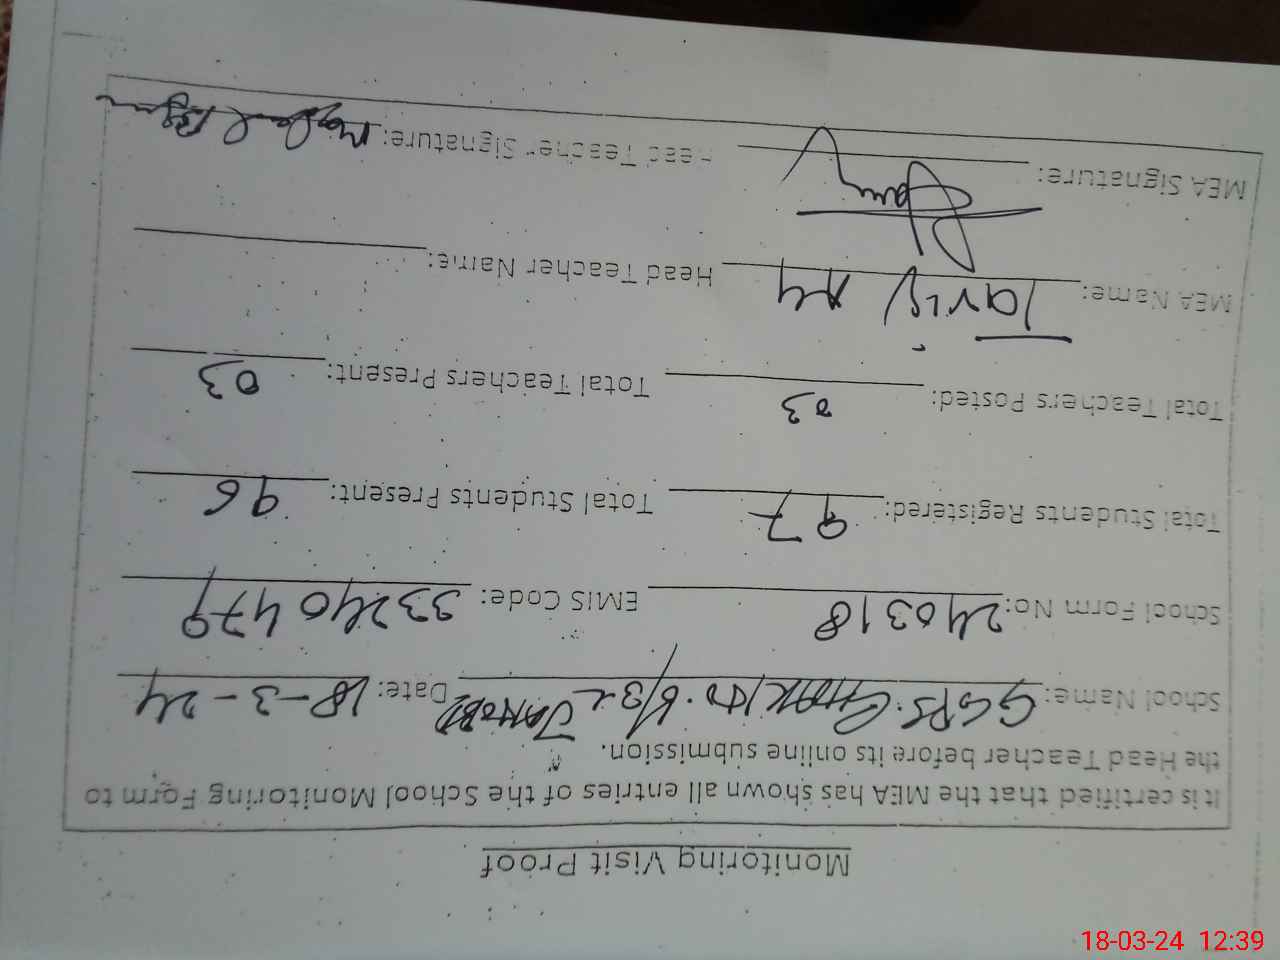 Monitoring Visit Proof
It is certified that the MEA has shown all entries of the School Monitoring Form to
the Head Teacher before its online submission.
School Name: GGPS. Date: 18-3-24
School Form No: 240318 EMIS Code: 33240479
Total Students Registered: 97 Total Students Present: 96
Total Teachers Posted: 03 Total Teachers Present: 03
MEA Name: Head Teacher Name:
MEA Signature: Head Teacher Signature:
18-03-24 12:39